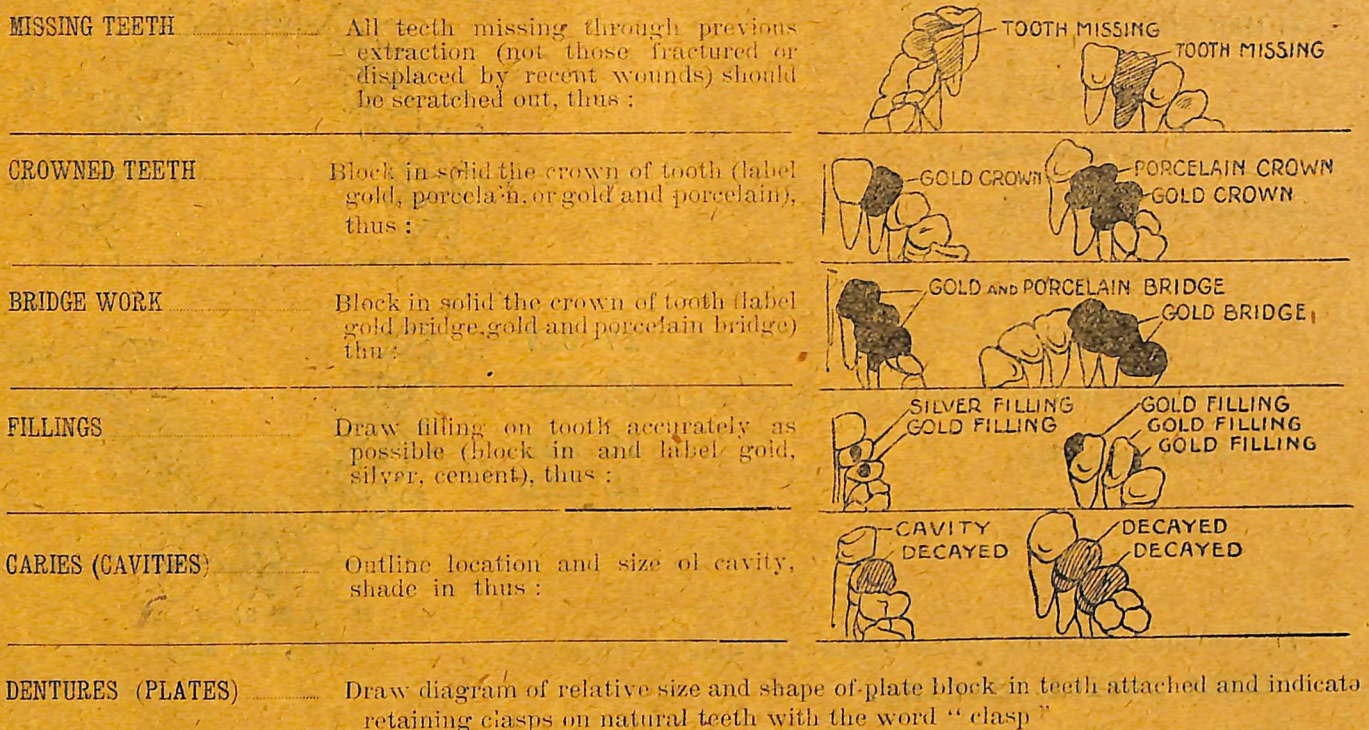 MISSING TEETH
All teeth missing through previous
extraction (not those fractured or
displaced by recent wounds) should
be scratched out, thus :
TOOTH MISSING
TOOTH MISSING
CROWNED TEETH
Block in solid the crown of tooth (label
gold, porcelain, or gold and porcelain),
thus :
GOLD CROWN
PORCELAIN CROWN
GOLD CROWN
BRIDGE WORK
Block in solid the crown of tooth (label
gold bridge, gold and porcelain bridge)
thu :
GOLD AND PORCELAIN BRIDGE
GOLD BRIDGE
FILLINGS
Draw filling on tooth accurately as
possible (block in and label gold,
silver, cement), thus :
SILVER FILLING
GOLD FILLING
GOLD FILLING
GOLD FILLING
GOLD FILLING
CARIES (CAVITIES)
Outline location and size of cavity,
shade in thus :
CAVITY
DECAYED
DECAYED
DECAYED
DENTURES (PLATES)
Draw diagram of relative size and shape of plate block in teeth attached and indicate
retaining clasps on natural teeth with the word “ clasp ”